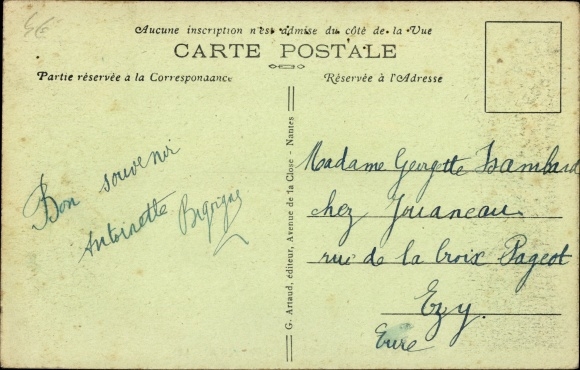 5€
Aucune inscription n'est admise du côté de la Vue
CARTE POSTALE
Partie réservée à la Correspondance
Réservée à l'Adresse
Bon souvenir
Antoinette
G. Artaud, éditeur, Avenue de la Close - Nantes
Madame Georgette Hambard
chez Jouaneau
rue de la Croix Pageot
Ezy.
Eure